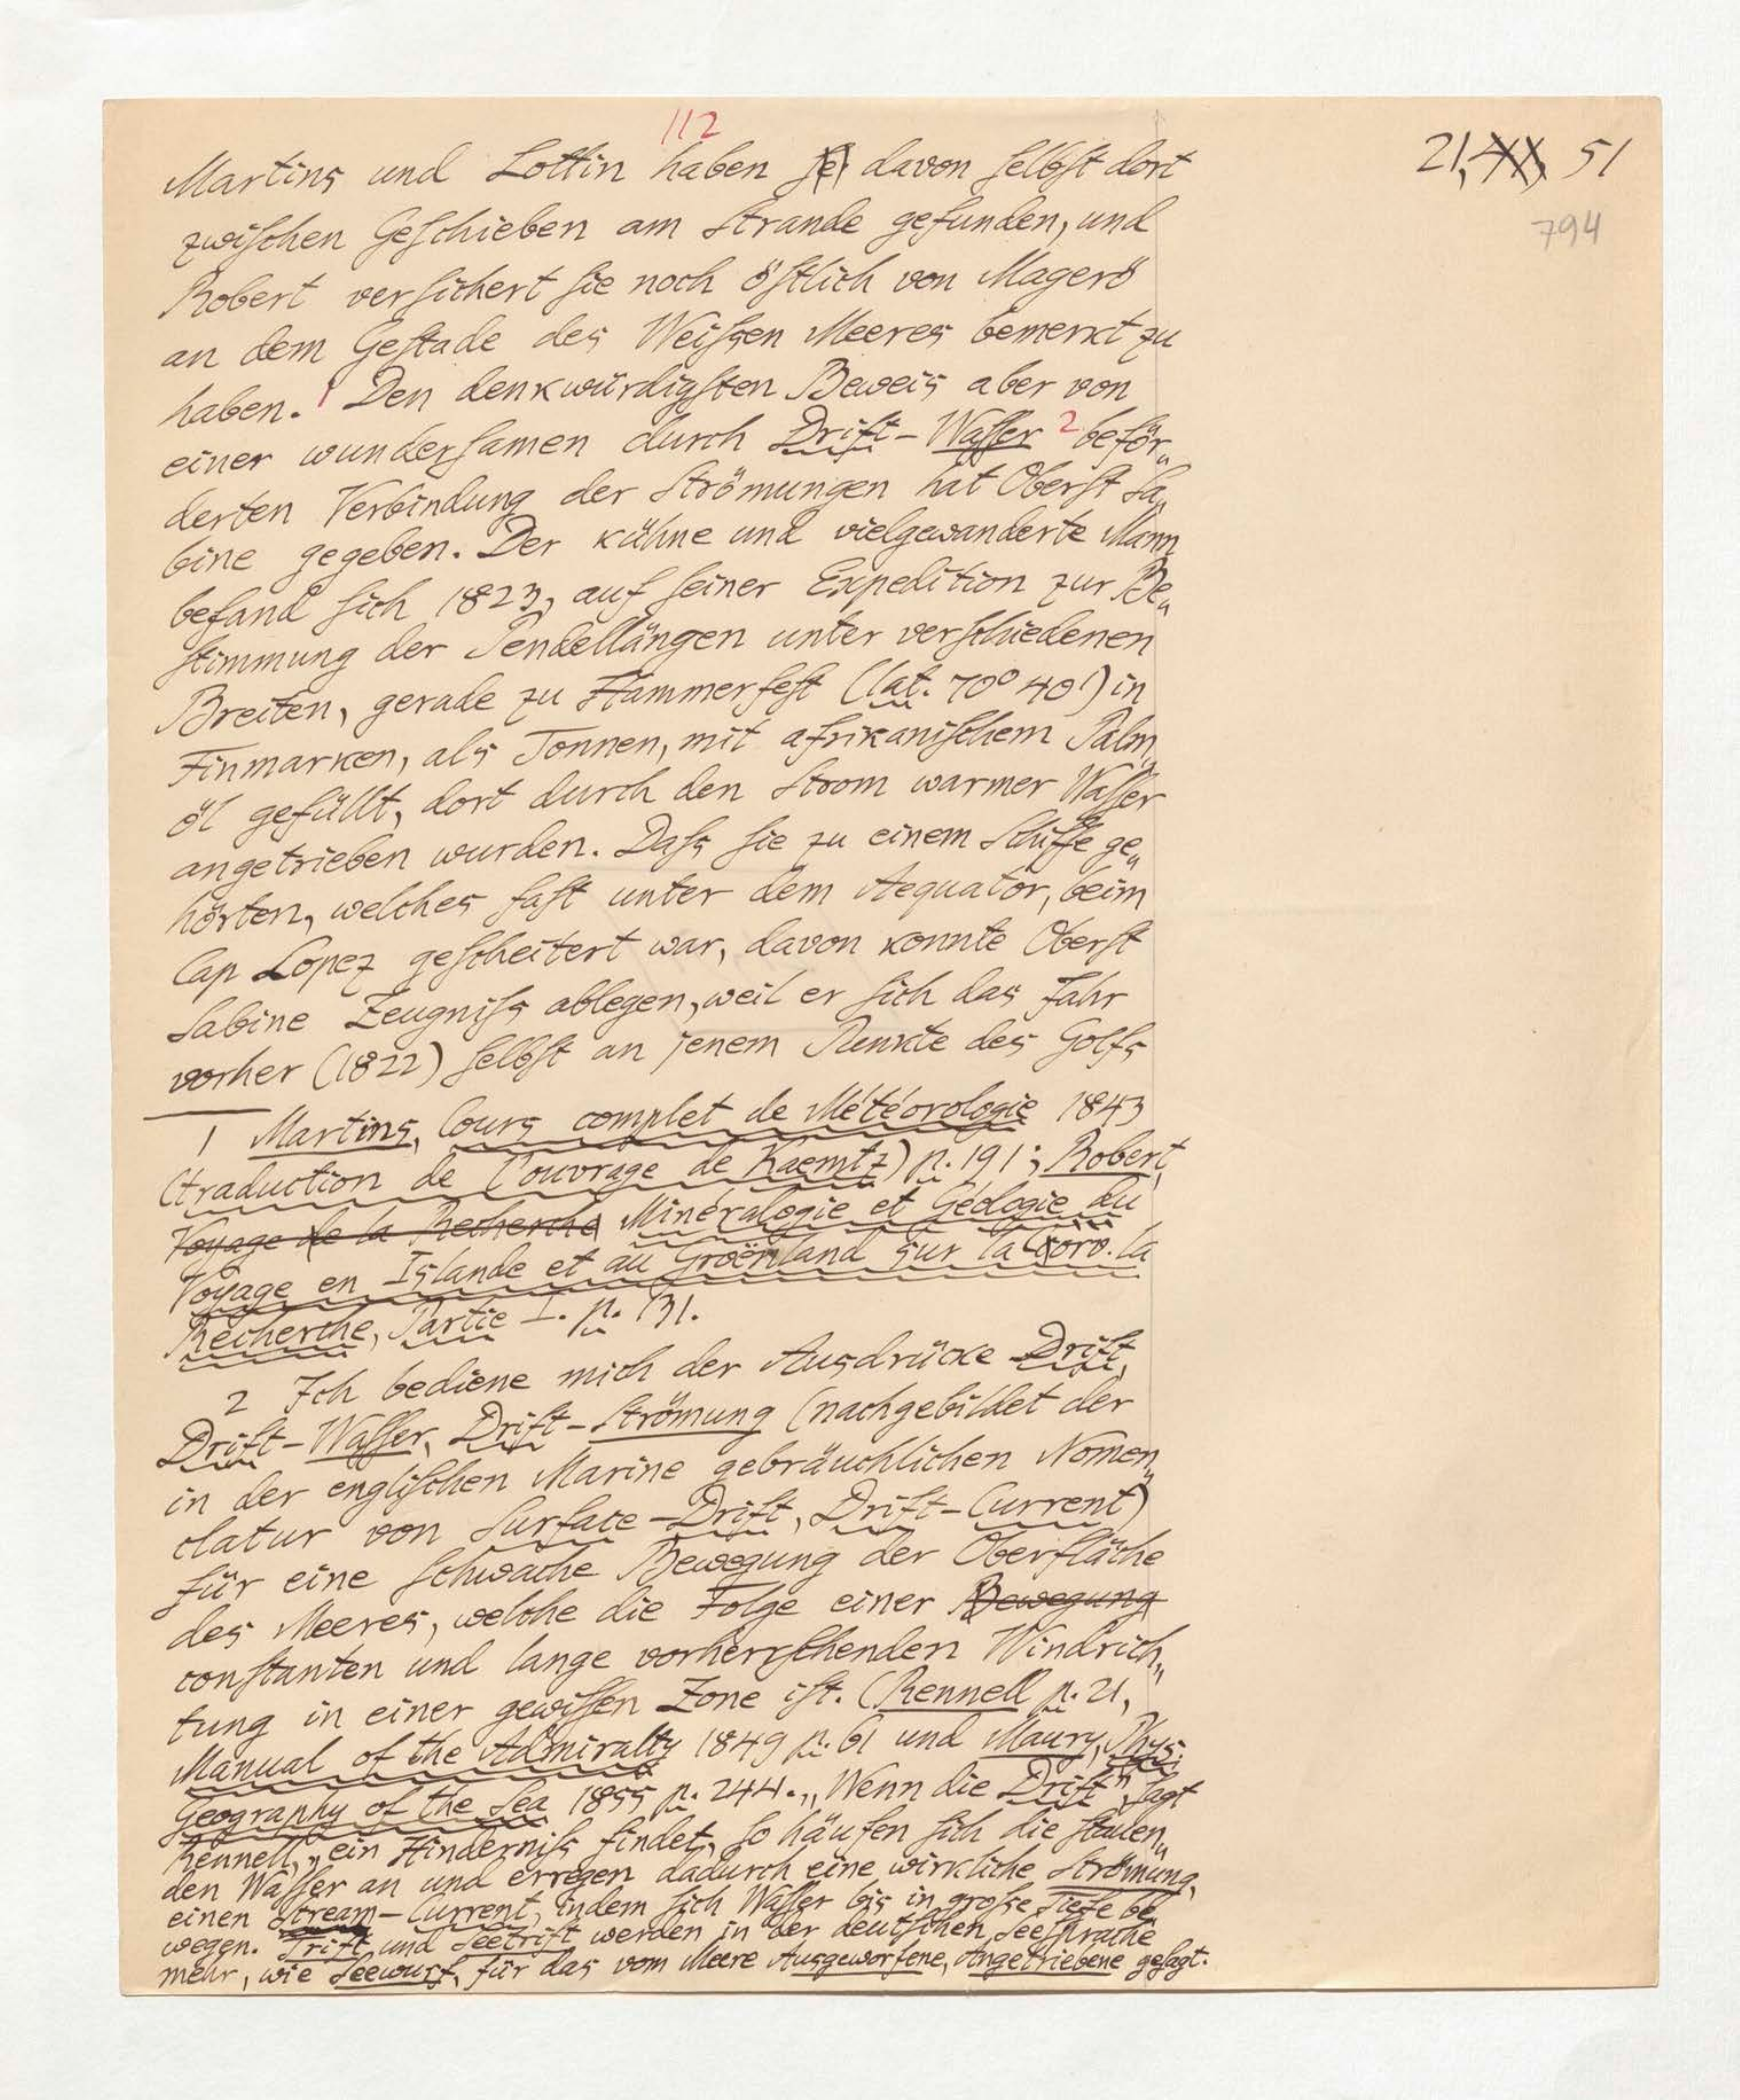 112
21, XX, 51
794
Martins und Lottin haben sei davon selbst dort
zwischen Geschieben am Strande gefunden, und
Robert versichert sie noch östlich von Magerö
an dem Gestade des Weißen Meeres bemerkt zu
haben.1 Den denkwürdigsten Beweis aber von
einer wundersamen durch Drift-Wasser 2 beför„
derten Verbindung der Strömungen hat Oberst Sa„
bine gegeben. Der kühne und vielgewanderte Mann
befand sich 1823, auf seiner Expedition zur Be„
stimmung der Pendellängen unter verschiedenen
Breiten, gerade zu Hammerfest (lat. 70° 40') in
Finmarken, als Tonnen, mit afrikanischem Palm„
öl gefüllt, dort durch den Strom warmer Wasser
angetrieben wurden. Daß sie zu einem Schiffe ge„
hörten, welches fast unter dem Aequator, beim
Cap Lopez gescheitert war, davon konnte Oberst
Sabine Zeugniß ablegen, weil er sich das Jahr
vorher (1822) selbst an jenem Punkte des Golfs
1 Martins, Cours complet de Météorologie 1843
(traduction de l'ouvrage de Kaemtz) p. 191; Robert,
Voyage de la Recherche Minéralogie et Géologie du
Voyage en Islande et au Groënland sur la Corv. la
Recherche, Partie I. p. 131.
2 Ich bediene mich der Ausdrücke Drift,
Drift-Wasser, Drift-Strömung (nachgebildet der
in der englischen Marine gebräuchlichen Nomen„
clatur von Surface-Drift, Drift-Current)
für eine schwache Bewegung der Oberfläche
des Meeres, welche die Folge einer Bewegung
constanten und lange vorherrschenden Windrich„
tung in einer gewissen Zone ist. (Rennell p. 21,
Manual of the Admiralty 1849 p. 61 und Maury, Phys.
Geography of the Sea 1855 p. 244. „Wenn die Drift", sagt
Rennell, „ein Hinderniß findet, so häufen sich die stauen„
den Wasser an und erregen dadurch eine wirkliche Strömung,
einen Stream-Current, indem sich Wasser bis in große Tiefe be„
wegen. Trift und Seetrift werden in der deutschen Seesprache
mehr, wie Seewurf, für das vom Meere Ausgeworfene, Angetriebene gesagt.